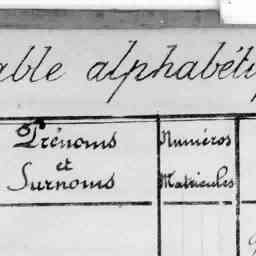 able alphabéti
Prénoms
et
Surnoms
Numéros
Matricules